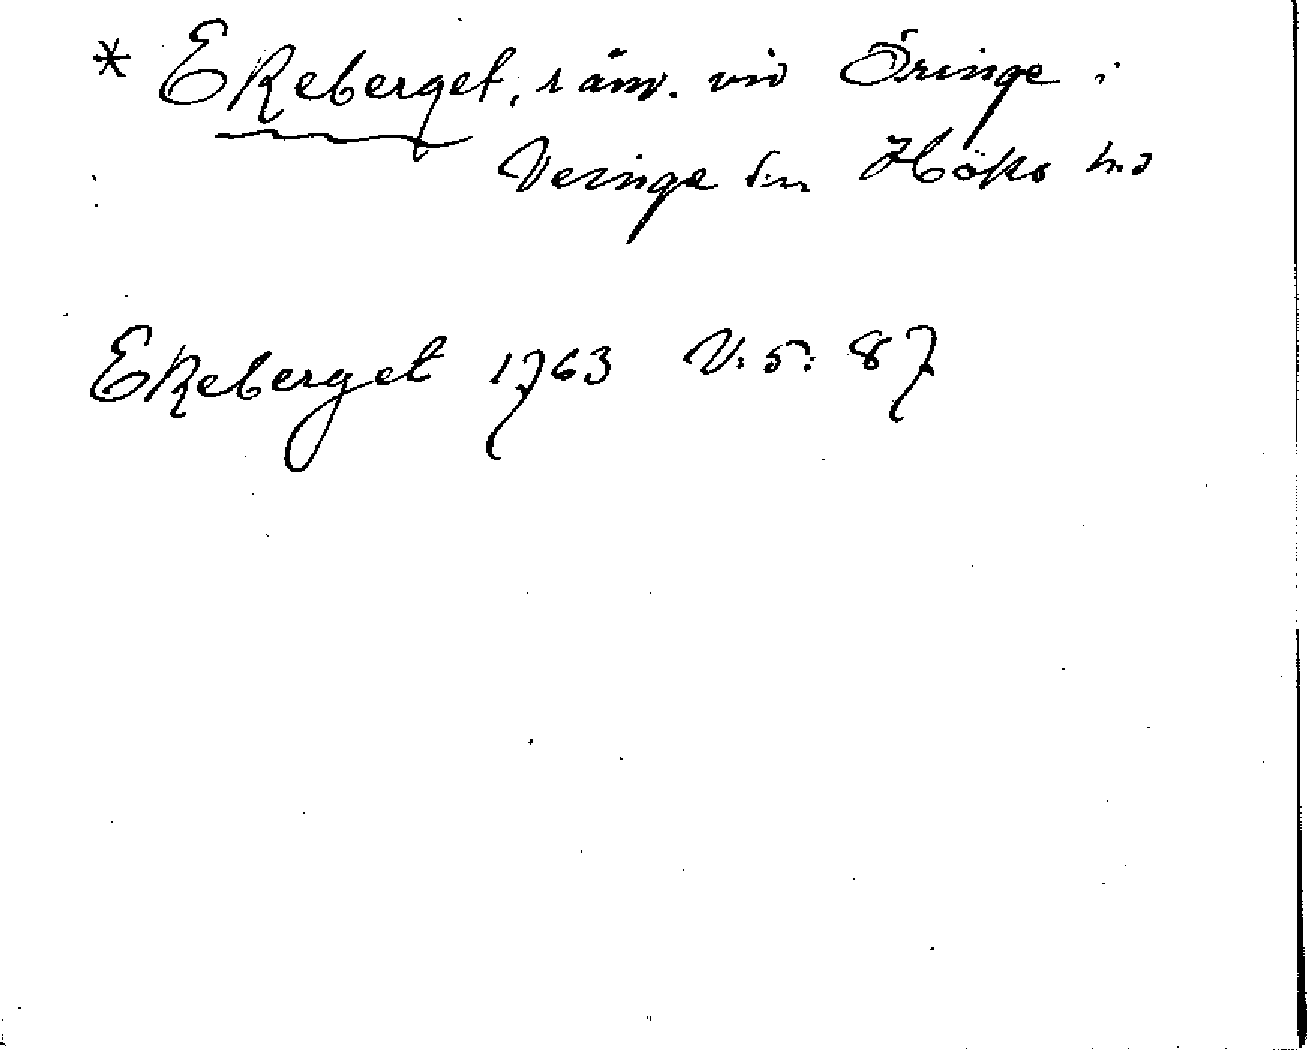 * Ekeberget, råm. vid Öringe i
Veinge sn Höks hd
Ekeberget 1763 V. 5: 87